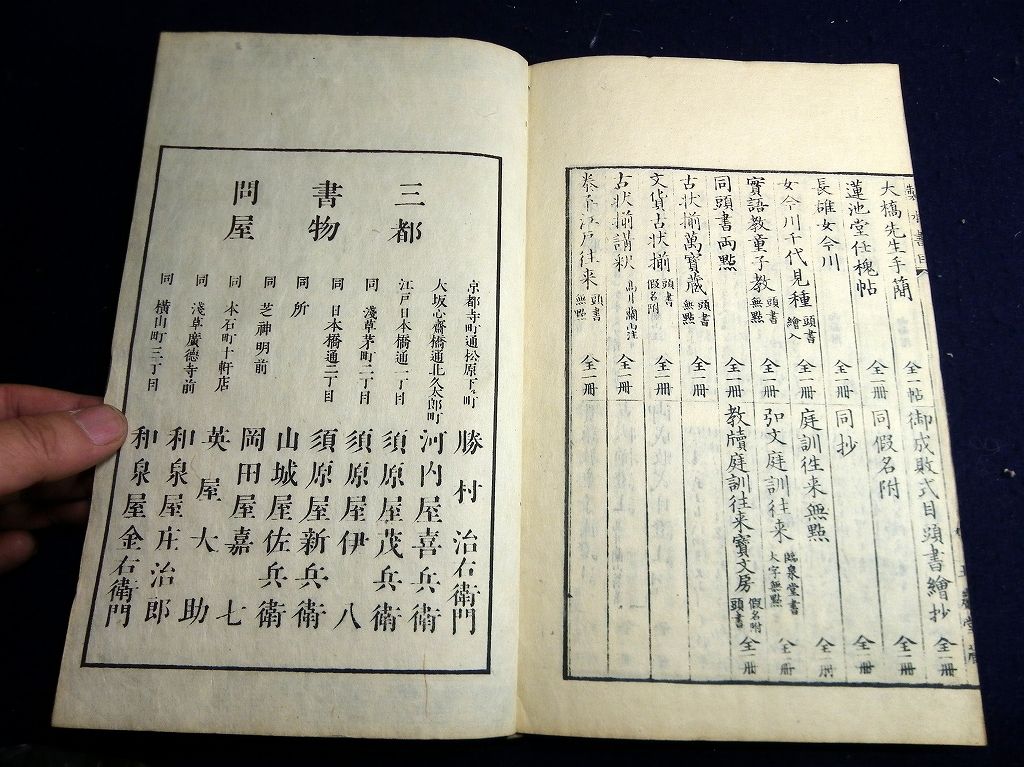 大橋先生手簡 全一帖
蓮池堂任槐帖 全一冊
長雄女今川 全一冊
女今川千代見種 頭書繪入 全一冊
實語教童子教 頭書無點 全一冊
同頭書両點 全一冊
古状揃萬寶藏 頭書無點 全一冊
文貨古状揃 頭書假名附 全一冊
古状揃講釈 全一冊
泰平江戸往来 頭書無點 全一冊
御成敗式目頭書繪抄 全一冊
同假名附 全一冊
同抄 全一冊
庭訓徃来無點 全一冊
弘文庭訓往来 臨泉堂書大字無點 全一冊
教牘庭訓往来寶文房 假名附頭書 全一冊
三都
書物
問屋
京都寺町通松原下ル町 勝村治右衛門
大坂心齋橋通北久太郎町 河内屋喜兵衛
江戸日本橋通一丁目 須原屋茂兵衛
同 淺草茅町二丁目 須原屋伊八
同 日本橋通二丁目 須原屋新兵衛
同 所 山城屋佐兵衛
同 芝神明前 岡田屋嘉七
同 本石町十軒店 英屋大助
同 淺草廣徳寺前 和泉屋庄治郎
同 横山町三丁目 和泉屋金右衛門